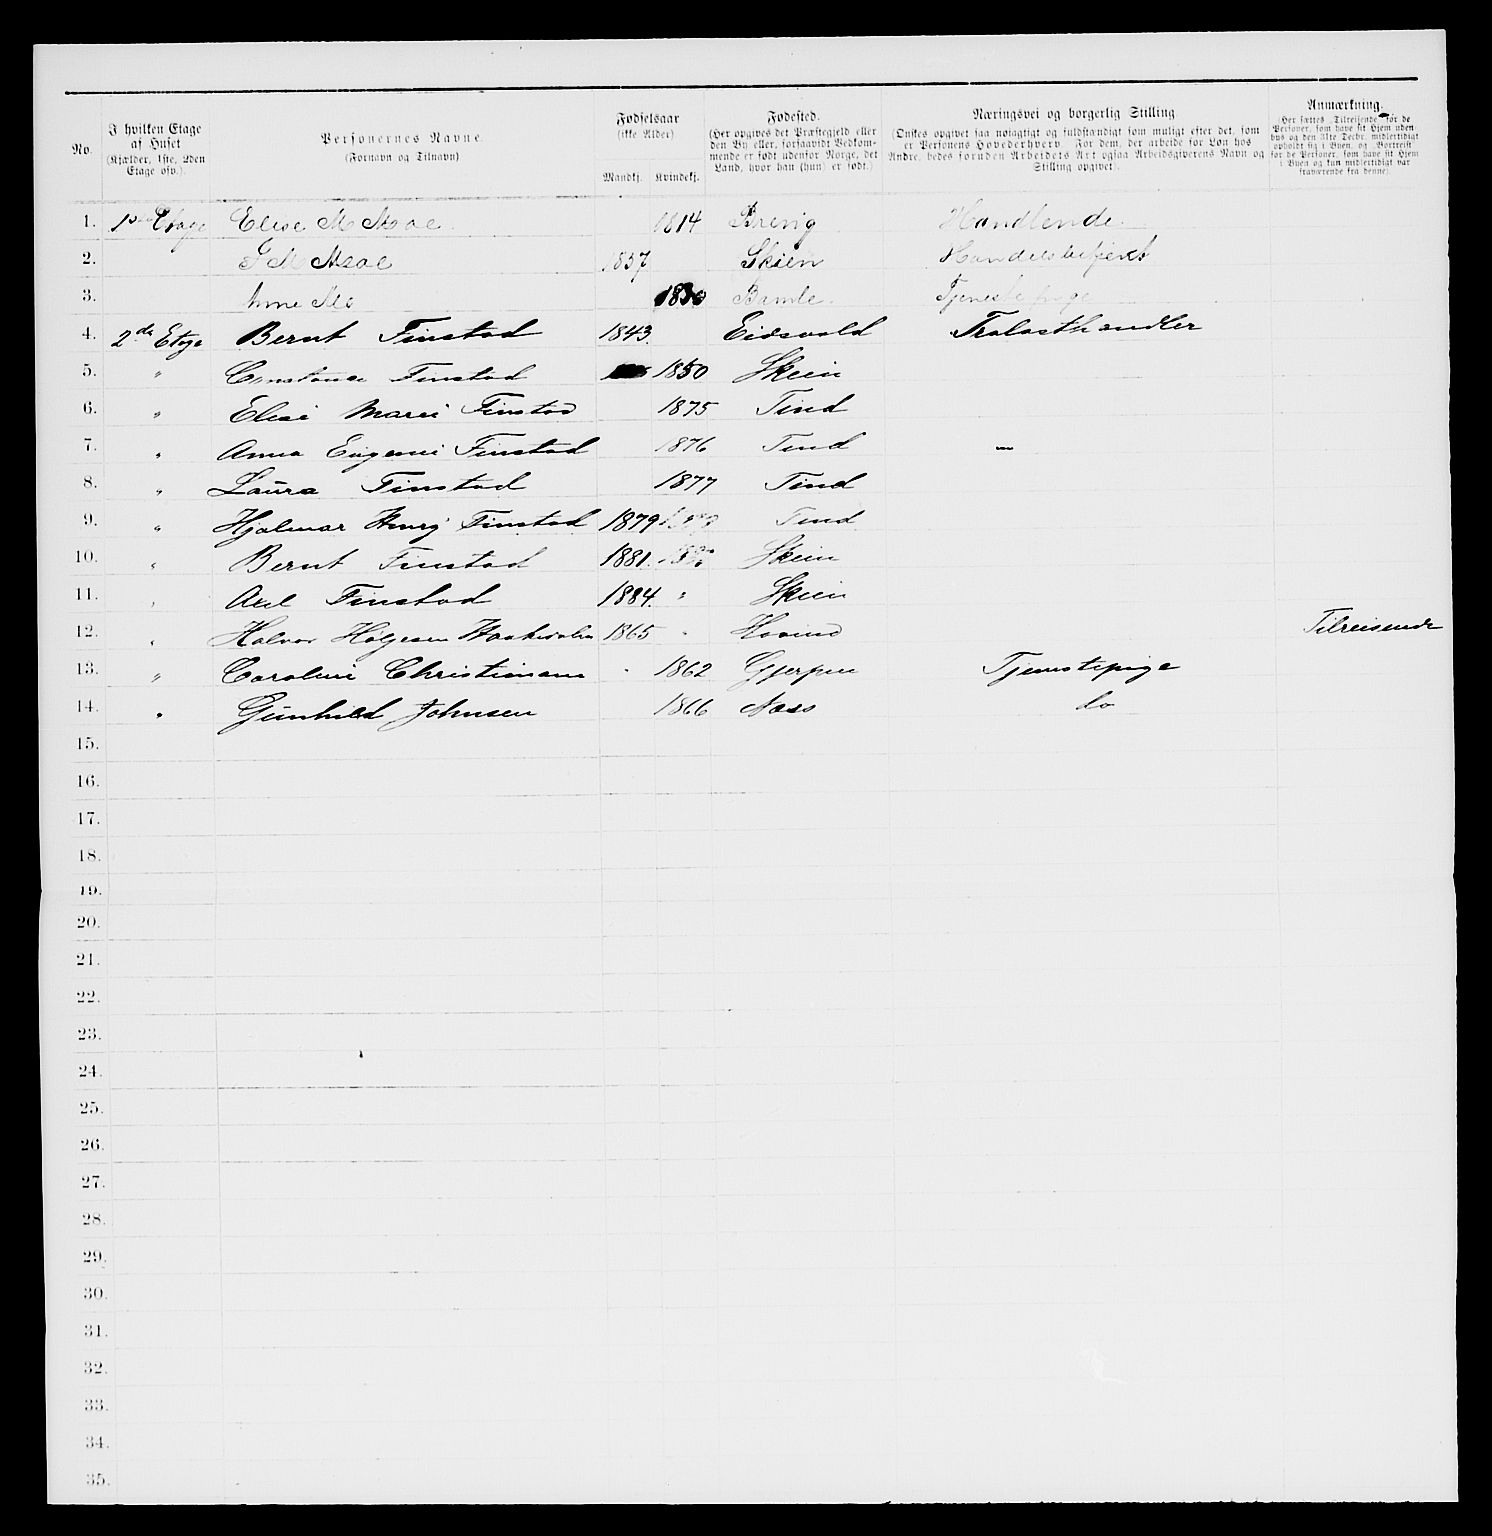 No. I hvilken Etage af Huset (Kjælder, 1ste, 2den Etage osv.). Personernes Navne. (Fornavn og Tilnavn) Fødselsaar (ikke Alder) Mandkj. Kvindekj. Fødested. (Her opgives det Præstegjeld eller den By eller, forsaavidt Vedkommende er født udenfor Norge, det Land, hvor han (hun) er født.) Næringsvei og borgerlig Stilling. (Ønskes opgivet saa nøiagtigt og fuldstændigt som muligt efter det, som er Personens Hovederhverv. For dem, der arbeide for Løn hos Andre, bedes foruden Arbeidets Art ogsaa Arbeidsgiverens Navn og Stilling opgivet). Anmærkning. (Her sættes „Tilreisende" for de Personer, som have sit Hjem udenbys og den 31te Decbr. midlertidigt opholdt sig i Byen, og „Bortreist" for de Personer, som have sit Hjem i Byen og kun midlertidigt var fraværende fra denne).
1. 1ste Etage Elise M 1814 Brevig Handlende
2. 1857 Skien
3. Bamle. Tjenestepige
4. 2de Etage Bernt Finstad 1843. Eidsvold Trælasthandler
5. " Constance Finstad 1850 Skein
6. " Elisi Marei Finstad 1875 Tind
7. " Anna Eugenei Finstad 1876 Tind
8. " Laura Finstad 1877 Tind
9. " Hjalmar Henry Finstad 1879 Tind
10. " Bernt Finstad 1881. Skein
11. " Axel Finstad 1884. " Skein
12. " Halvor 1865 " Hovind Tilreisende
13. " Carolini Christiansen " 1862 Gjerpen Tjenstepige
14. " Gunhild Johnsen 1866 Næss do
15.
16.
17.
18.
19.
20.
21.
22.
23.
24.
25.
26.
27.
28.
29.
30.
31.
32.
33.
34.
35.